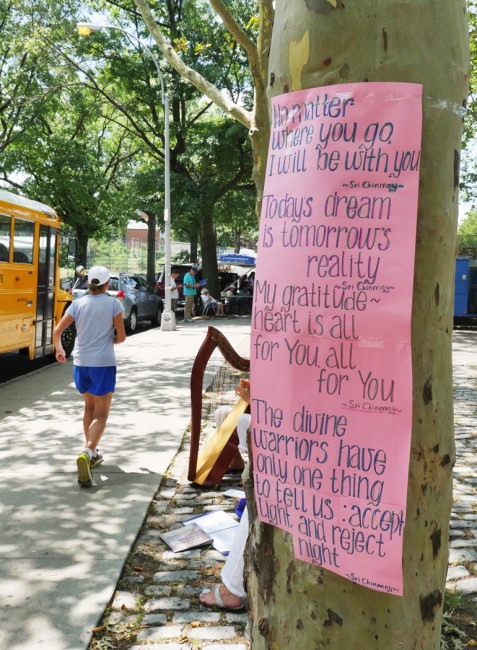 No matter
where you go
I will be with you
~Sri Chinmoy~
Todays dream
is tomorrow's
reality
~Sri Chinmoy~
My gratitude~
heart is all
for You, all
for You
~Sri Chinmoy~
The divine
warriors have
only one thing
to tell us : accept
light and reject
night
~Sri Chinmoy~